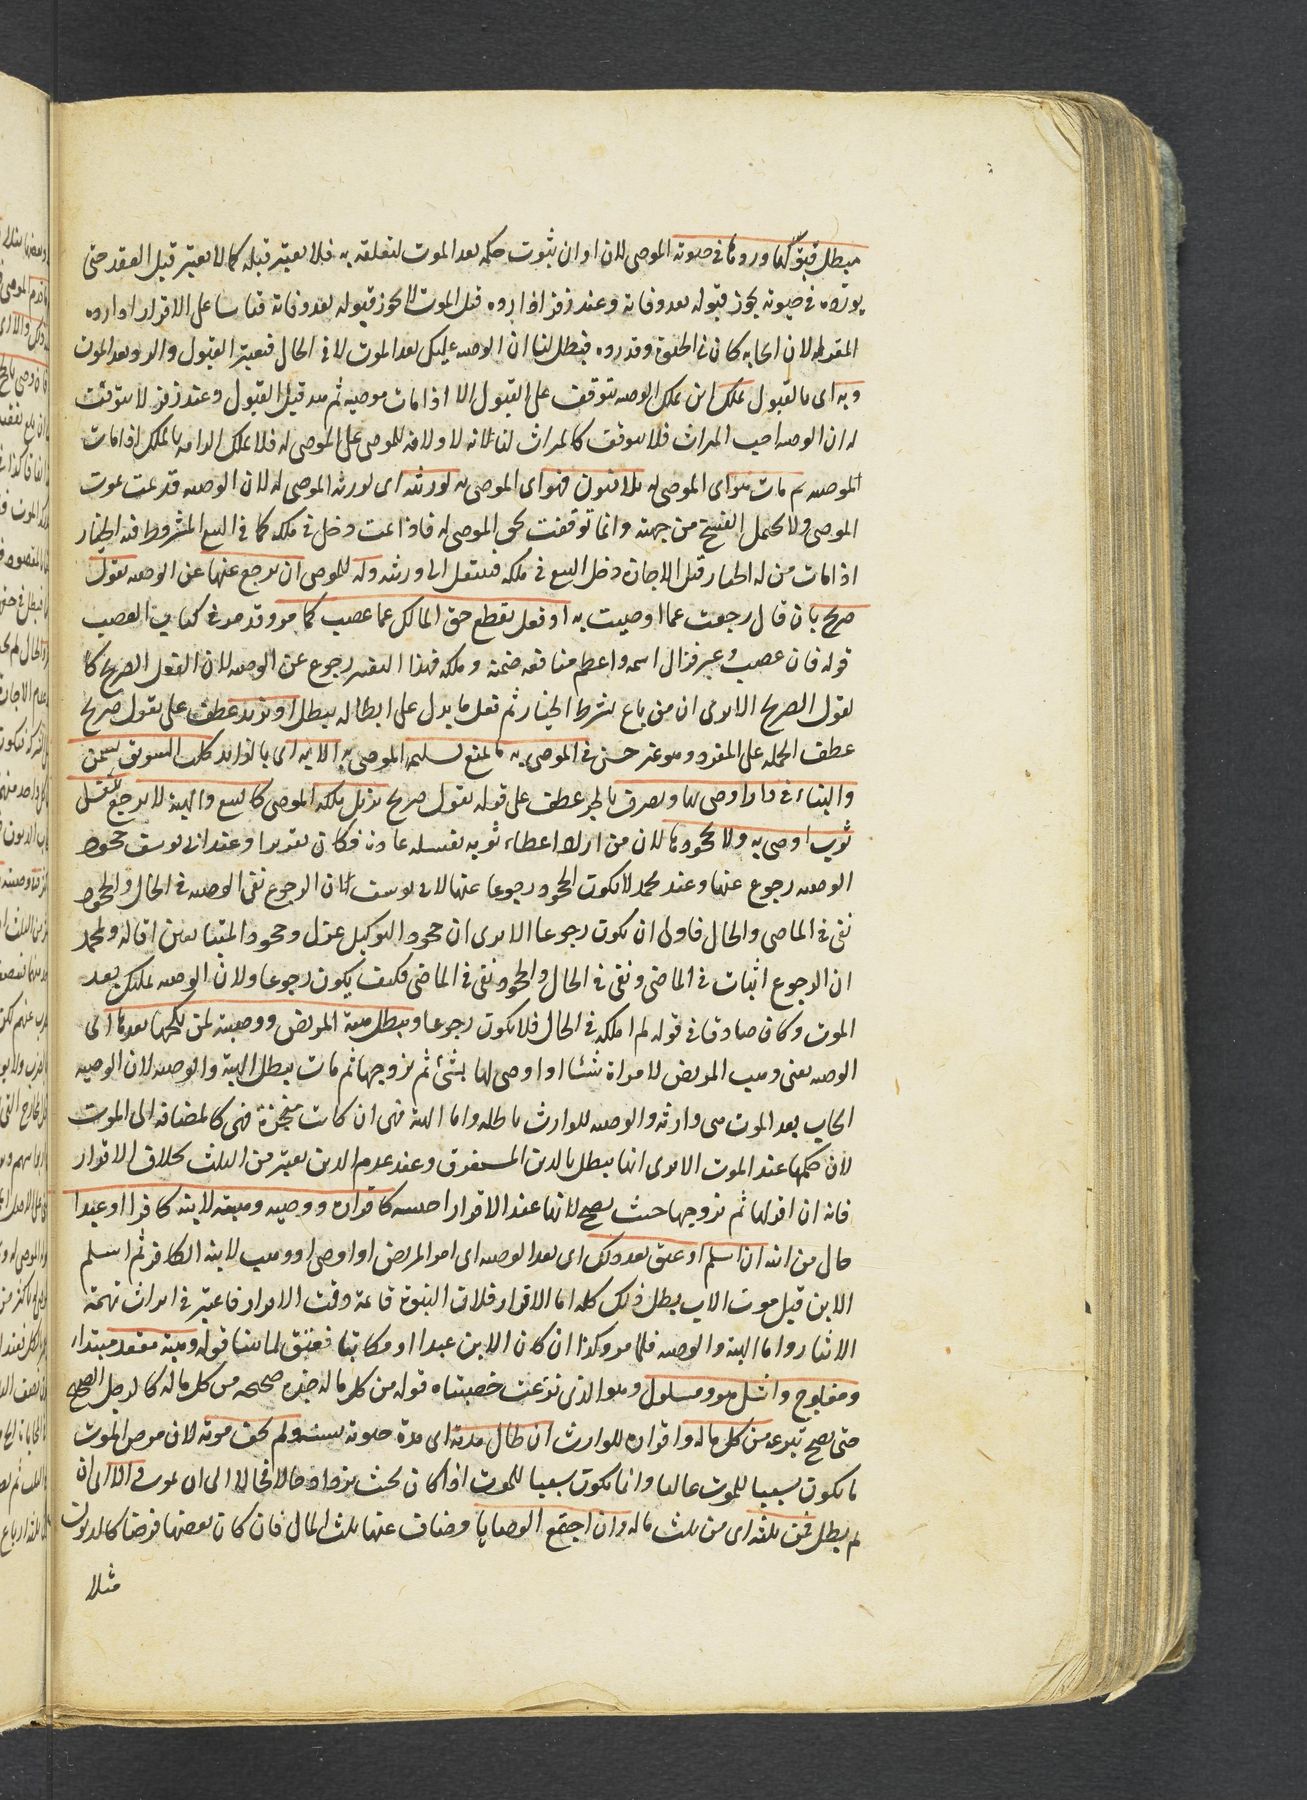 فيطل قبولها وردها في حيوته الموصى لان اوان ثبوت حكمه بعد الموت لتعلقه به فلا يعتبر قبله كما لا يعتبر قبل العقد حتى
يوردّه في حيوته يجوز قبوله بعد وفاته وعند زفر اذا رده قبل الموت لا يجوز قبوله بعد وفاته قياسا على الاقرار اذا رده
المقر له لان ايجابه كان في الحلوة وقد رده فبطل لنا ان الوصيه تمليك بعد الموت لا في الحال فيعتبر القبول والرد بعد الموت
وبه اى بالقبول يملك اى يملك الوصيه يتوقف على القبول الا اذا مات موصيه ثم هو قبل القبول وعند زفر لا يتوقف
له ان الوصيه اخت الميراث فلا يتوقف كالميراث لنا انه لا ولاية للموصى على الموصى له فلا يملك الزامه بالملك اذا مات
الموصى ثم مات هو اى الموصى له بلا قبول فهو اى الموصى به لورثته اى لورثة الموصى له لان الوصيه قد تمت بموت
الموصى ولا يحتمل الفسخ من جهته وانما توقفت لحق الموصى له فاذا مات دخل في ملكه كما في البيع المشروط فيه الخيار
اذا مات من له الخيار قبل الاجازة دخل المبيع في ملكه فينتقل الى ورثته وله للموصى ان يرجع عنها عن الوصيه بقول
صريح بان قال رجعت عما اوصيت به او فعل يقطع حق المالك عما غصب كما مر وقد مر في كتاب الغصب
قوله فان غصب وغير فزال اسمه واعظم منافعه ضمنه وملكه فهذا التغيير رجوع عن الوصيه لان الفعل الصريح كا
لقول الصريح الا يرى ان من باع بشرط الخيار ثم فعل ما يدل على ابطاله يبطل او يزيد عطف على بقول صريح
عطف الجمله على المفرد وهو غير حسن في الموصى به ما يمنع تسليمه الموصى به الا به اى بالزوايد كلت السويق بسمن
والبناء في دار اوصى بها وتصرف بالجر عطف على قوله بقول صريح يزيل ملكه الموصى كالبيع والهبه لا يرجع بغسل
ثوب اوصى به ولا بجحودها لان من اراد اعطاء ثوبه يغسله عادة فكان تقريرا وعند ابى يوسف جحود
الوصيه رجوع عنها وعند محمد لا يكون الجحود رجوعا عنها لابى يوسف ان الرجوع نفى الوصيه في الحال والجحود
نفى في الماضى والحال فاولى ان يكون رجوعا الا يرى ان جحود التوكيل عزل وجحود المتبايعين اقالة ولمحمد
ان الرجوع اثبات في الماضى ونفى في الحال والجحود نفى في الماضى فكيف يكون رجوعا ولان الوصيه تمليك بعد
الموت وكان صادقا في قوله لم املكه في الحال فلا يكون رجوعا ويبطل هبة المريض ووصيته لمن نكحها بعدها اى
الوصيه يعنى وهب المريض لامراة شيئا او اوصى لها بشئ ثم تزوجها ثم مات يبطل الهبة والوصيه لان الوصيه
ايجاب بعد الموت هى وارثه والوصيه للوارث باطله واما الهبة فهى ان كانت منجزة فهى كالمضافه الى الموت
لان حكمها عند الموت الا يرى انها يبطل بالدين المستغرق وعند عدم الدين يعتبر من الثلث بخلاف الاقرار
فانه ان اقر لها ثم تزوجها حيث يصح لانها عند الاقرار اجنبيه كاقراره ووصيه وهبته لابنه كافرا او عبدا
حال من ابنه ان اسلم او عتق بعد ذلك اى بعد الوصيه اى اقر المريض او اوصى او وهب لابنه الكافر ثم اسلم
الابن قبل موت الاب يبطل ذلك كله اما الاقرار فلان البنوة قائمة وقت الاقرار فاعتبر في ايراث تهمة
الايثار واما الهبة والوصيه فلما مر وكذا ان كان الابن عبدا او مكاتبا فعتق لما بينا قوله وهبة مقعد مبتداء
ومفلوج واشل هو ومسلول وهو الذى نزعت خصيتاه قوله من كل ماله خبره صحيحه من كل ماله كالرجل الصحيح
حتى يصح تبرعه من كل ماله واقراره للوارث ان طال مدته اى مدة حيوته بسنة ولم يخف موته لان مرض الموت
ما يكون سببا للموت غالبا وانما يكون سببا للموت اذا كان بحيث يزداد حالا فحالا الى ان يموت والا اى ان
لم يطل فمن ثلثه اى من ثلث ماله وان اجتمع الوصايا وضاق عنها ثلث المال فان كان بعضها فرضا كالديون
مثلا